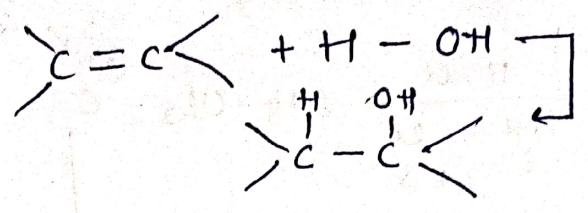 C = C + H - OH
H OH
C - C